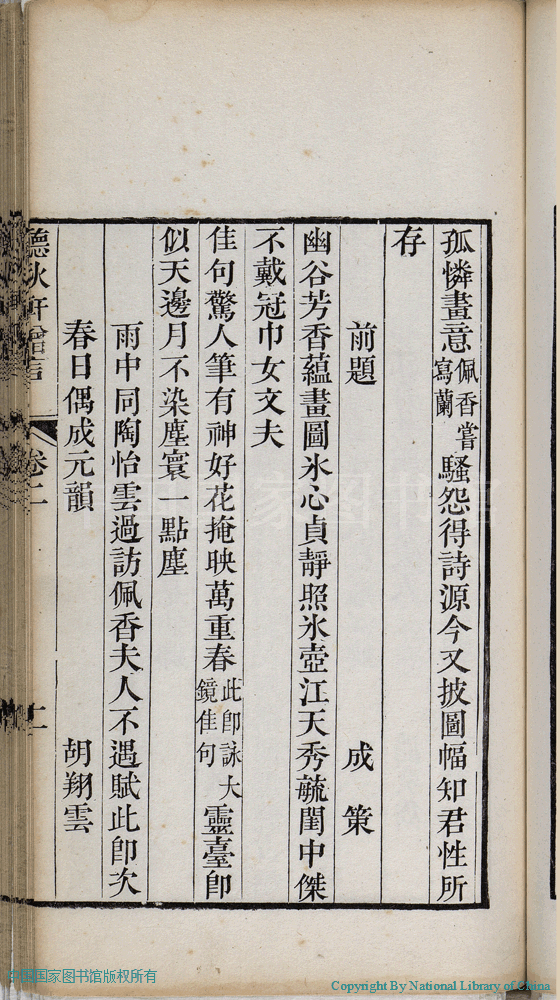 孤憐畫意佩香嘗寫蘭騷怨得詩源今又披圖幅知君性所
存
前題 成策
幽谷芳香蘊畫圖氷心貞靜照氷壺江天秀毓閨中傑
不戴冠巾女文夫
佳句驚人筆有神好花掩映萬重春此卽詠大鏡佳句靈臺卽
似天邊月不染塵寰一點塵
雨中同陶怡雲過訪佩香夫人不遇賦此卽次
春日偶成元韻 胡翔雲
聽秋軒贈言 卷二 二
中国国家图书馆版权所有
Copyright By National Library of China